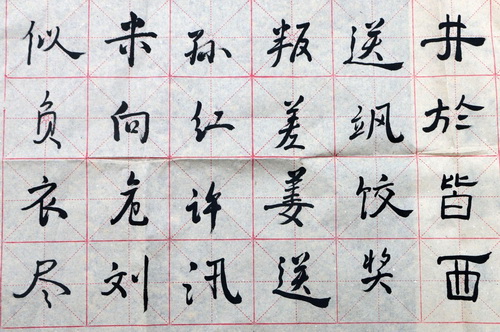 井於皆西
送飒饺奖
叛差姜送
孙红许汛
向危刘
似负衣尽